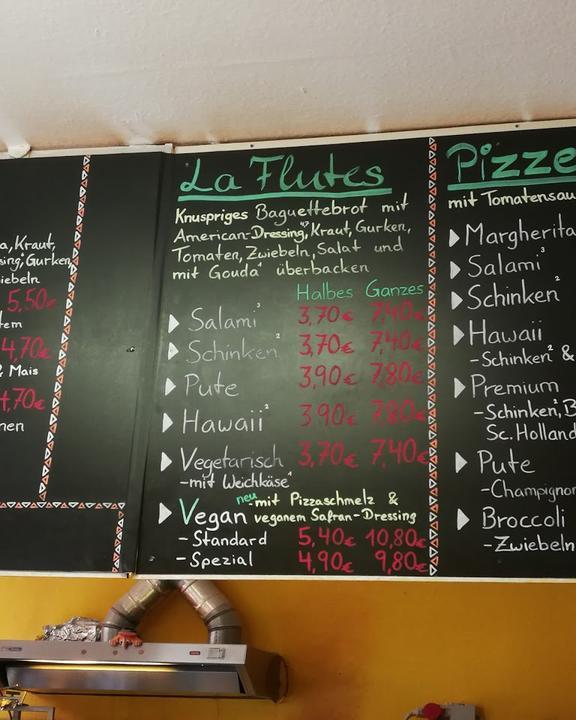 a, Kraut,
sing, Gurken
iebeln
5,50€
tem
4,70€
& Mais
4,70€
nen
La Flutes
Knuspriges Baguettebrot mit
American-Dressing, Kraut, Gurken,
Tomaten, Zwiebeln, Salat und
mit Gouda überbacken
Halbes Ganzes
Salami² 3,70€ 7,40€
Schinken² 3,70€ 7,40€
Pute 3,90€ 7,80€
Hawaii² 3,90€ 7,80€
Vegetarisch 3,70€ 7,40€
-mit Weichkäse
neu mit Pizzaschmelz &
Vegan veganem Safran-Dressing
-Standard 5,40€ 10,80€
-Spezial 4,90€ 9,80€
Pizze
mit Tomatensau
Margherita
Salami
Schinken²
Hawaii
-Schinken² &
Premium
-Schinken, B
Sc. Holland
Pute
-Champignon
Broccoli
-Zwiebeln